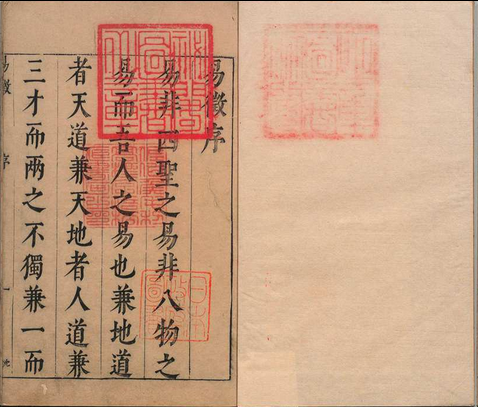 易徵序
易非四聖之易非八物之
易而吾人之易也兼地道
者天道兼天地者人道兼
三才而兩之不獨兼一而
易徵
序
一